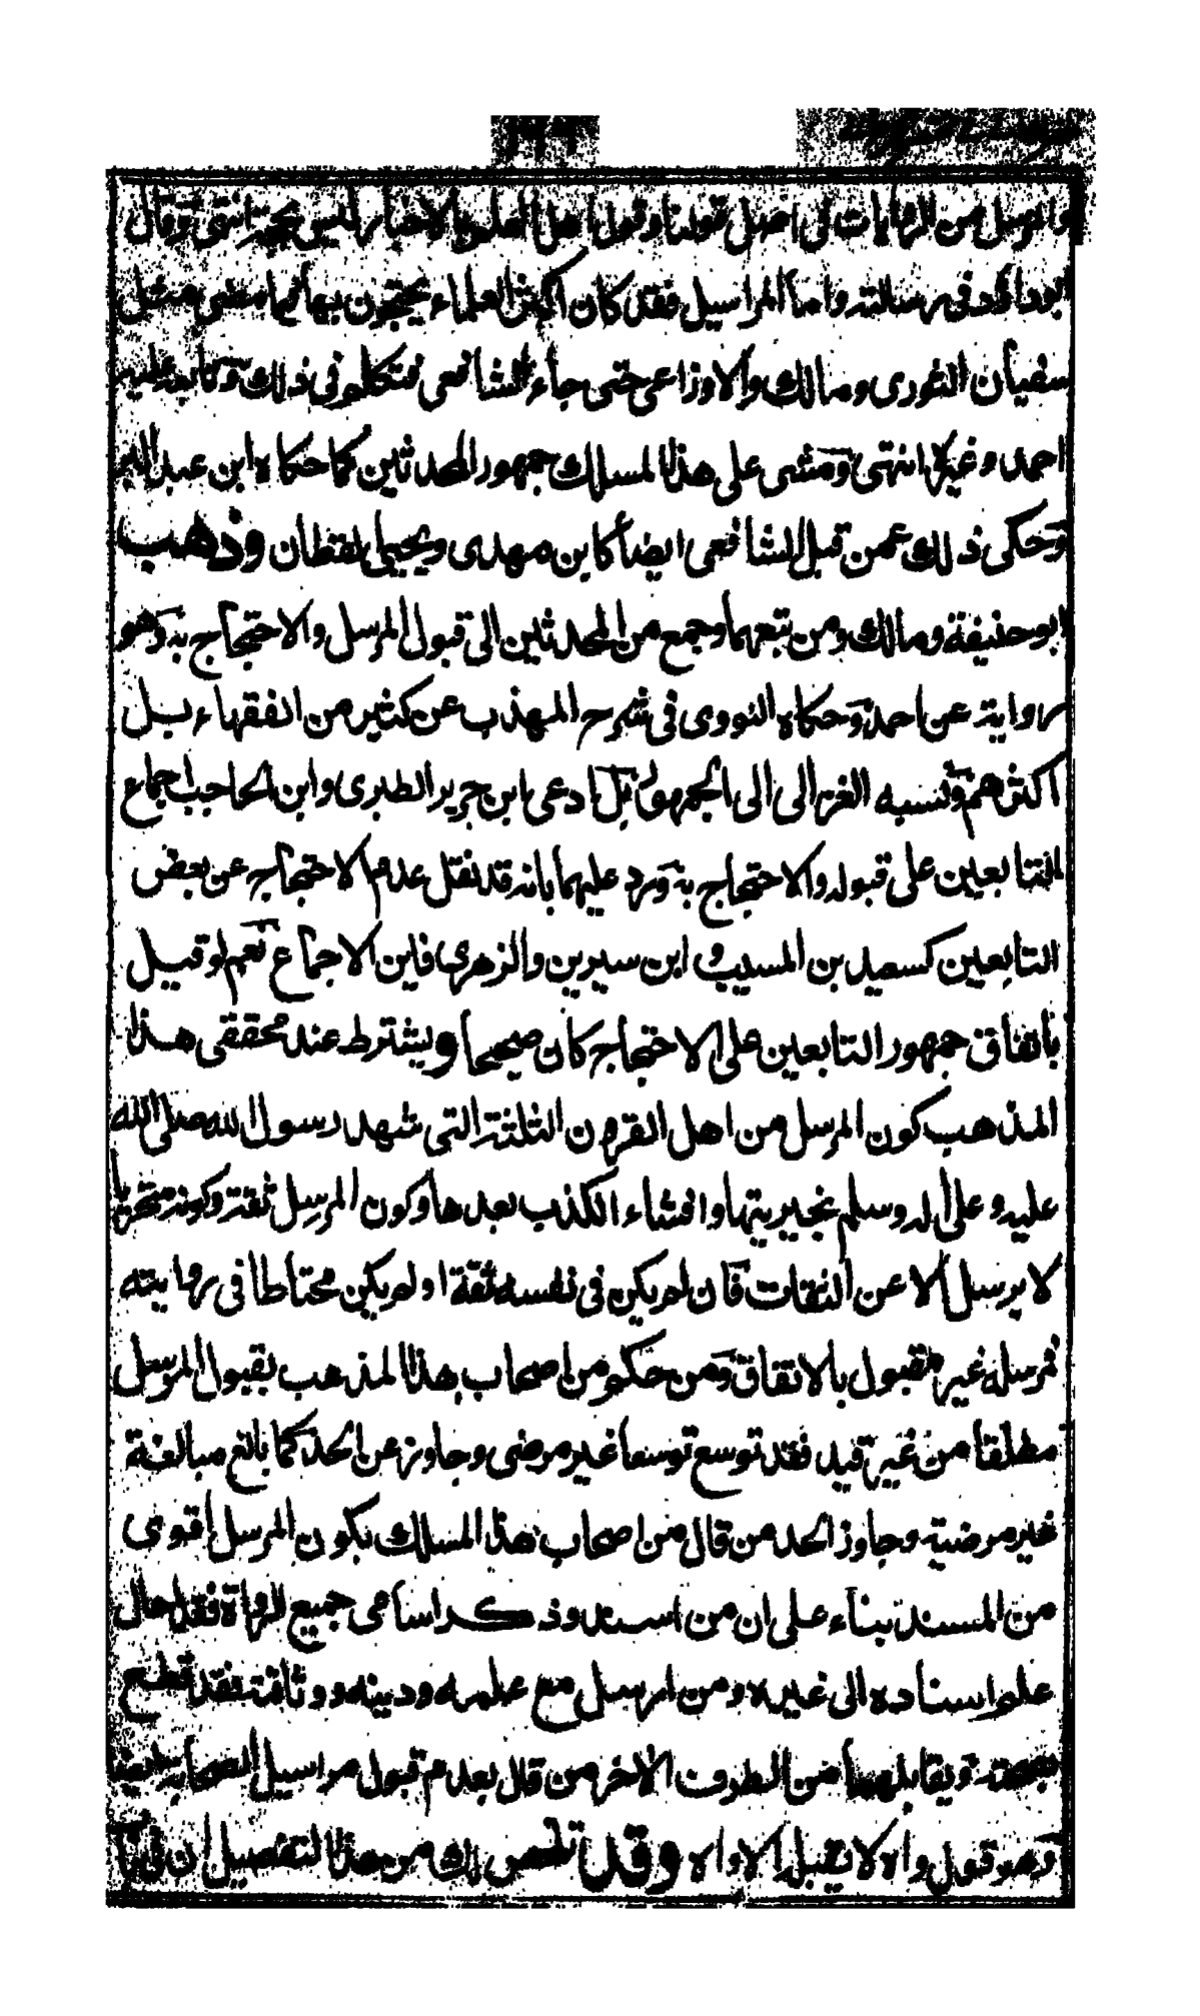 والمرسل من الروايات في اصل قولنا وقول اهل العلم بالاخبار ليس بحجة انتهى وقال
ابوداؤد في رسالته واما المراسيل فقد كان اكثر العلماء يحتجون بها فيما مضى مثل
سفيان الثوري ومالك والاوزاعي حتى جاء الشافعي فتكلم في ذلك وتابعه عليه
احمد وغيره انتهى ومشى على هذا المسلك جمهور المحدثين كما حكاه ابن عبد البر
وحكى ذلك عمن قبل الشافعي ايضا كابن مهدى ويحيى القطان وذهب
ابوحنيفة ومالك ومن تبعهما وجمع من المحدثين الى قبول المرسل والاحتجاج به وهو
رواية عن احمد وحكاه النووى في شرح المهذب عن كثير من الفقهاء بل
اكثرهم ونسبه الغزالى الى الجمهور بل ادعى ابن جرير الطبرى وابن الحاجب اجماع
التابعين على قبوله والاحتجاج به ورد عليهما بانه قد نقل عدم الاحتجاج عن بعض
التابعين كسعيد بن المسيب و ابن سيرين والزهرى فاين الاجماع نعم لو قيل
باتفاق جمهور التابعين على الاحتجاج كان صحيحا ويشترط عند محققى هذا
المذهب كون المرسل من اهل القرون الثلثة التى شهد رسول الله صلى الله
عليه وعلى اله وسلم بخيريتها وافشاء الكذب بعدها وكون المرسل ثقة وكونه متحريا
لا يرسل الا عن الثقات فان لم يكن في نفسه ثقة او لم يكن محتاطا في روايته
فمرسله غير مقبول بالاتفاق ومن حكم من اصحاب هذا المذهب بقبول المرسل
مطلقا من غير قيد فقد توسع توسعا غير مرضى وجاوز عن الحد كما بالغ مبالغة
غير مرضية وجاوز الحد من قال من اصحاب هذا المسلك بكون المرسل اقوى
من المسند بناء على ان من اسند وذكر اسامى جميع الرواة فقد احال
علم اسناده الى غيره ومن ارسل مع علمه ودينه ووثاقته فقد قطع
بصحته ويقابلهما من الطرف الاخر من قال بعدم قبول مراسيل الصحابة ايضا
وهو قول واه لا يقبله الا واه وقد تلخص لك من هذا التفصيل ان في